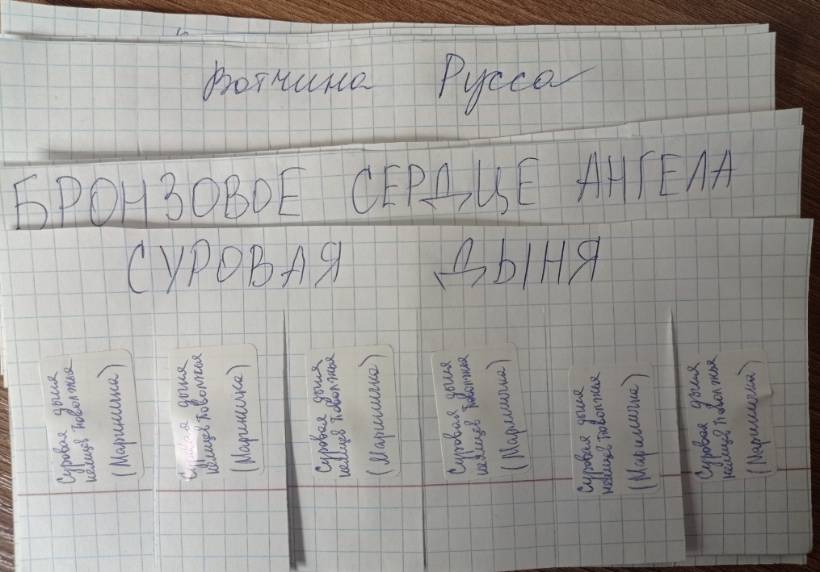 Вотчина Русса
БРОНЗОВОЕ СЕРДЦЕ АНГЕЛА
СУРОВАЯ ДЫНЯ
Суровая дыня
немцев Поволжья
(Маринична)
Суровая дыня
немцев Поволжья
(Маринична)
Суровая дыня
немцев Поволжья
(Маринична)
Суровая дыня
немцев Поволжья
(Маринична)
Суровая дыня
немцев Поволжья
(Маринична)
Суровая дыня
немцев Поволжья
(Маринична)